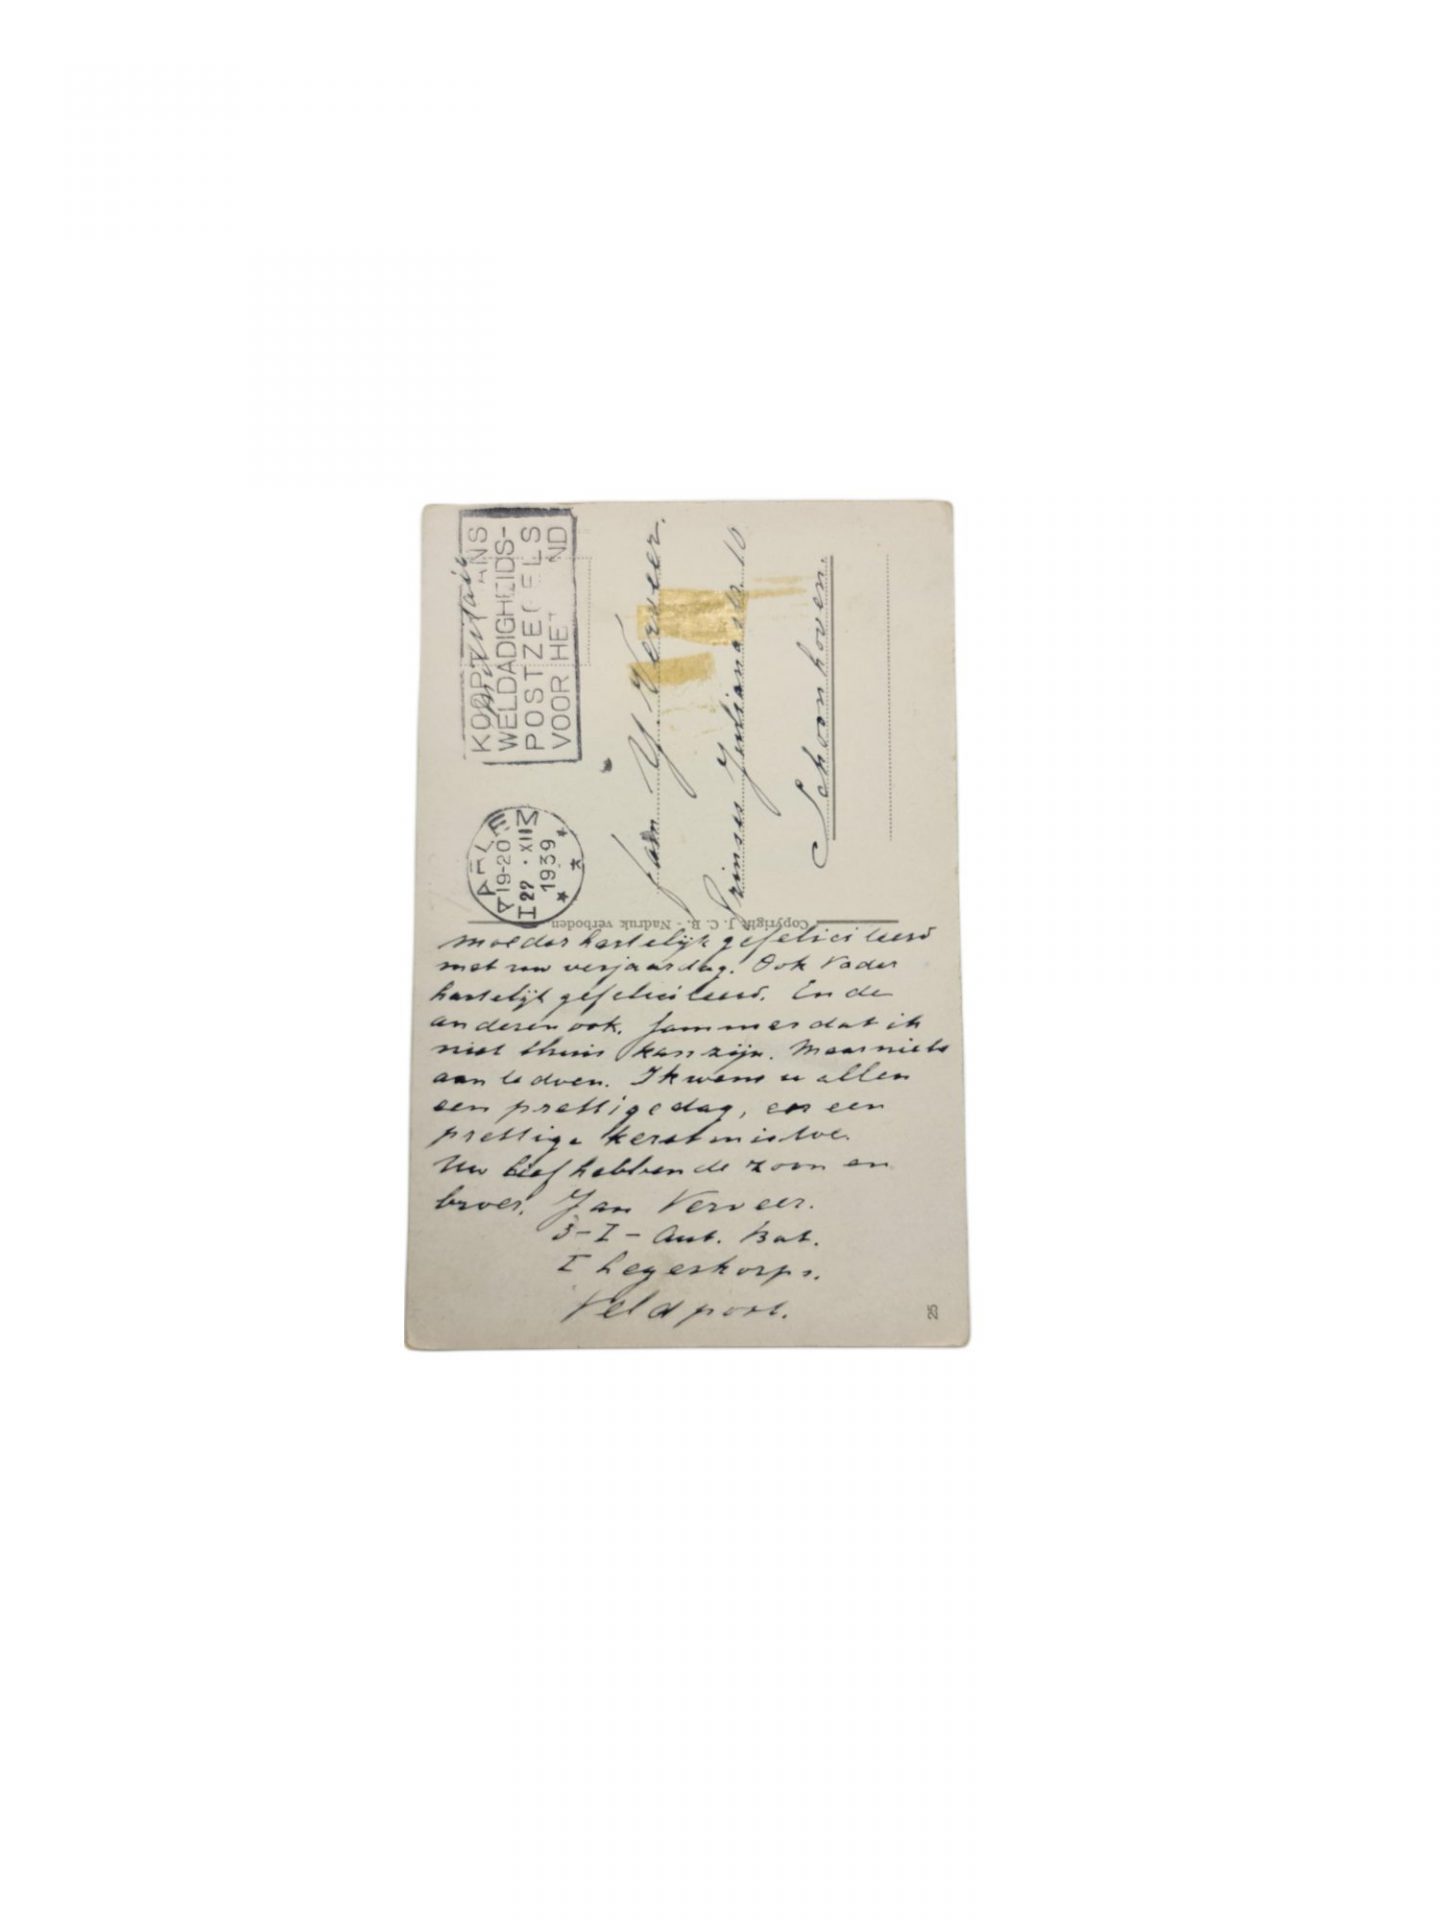 KOOPT THANS
WELDADIGHEIDS-
POSTZEGELS
VOOR HET KIND
Militair
HAARLEM
19-20
22 · XII
1939
Fam Y. Verveer.
Prinses Julianastr. 10
Schoonhoven.
Copyright J. C. B. - Nadruk verboden
moeder hartelijk gefeliciteerd
met uw verjaardag. Ook Vader
hartelijk gefeliciteerd. En de
anderen ook. Jammer dat ik
niet thuis kan zijn. Maar niets
aan te doen. Ik wens u allen
een prettige dag, en een
prettige kerstmis toe.
Uw liefhebbende zoon en
broer. Jan Verveer.
3-I- Aut. Bat.
I Legerkorps.
Veldpost.
25